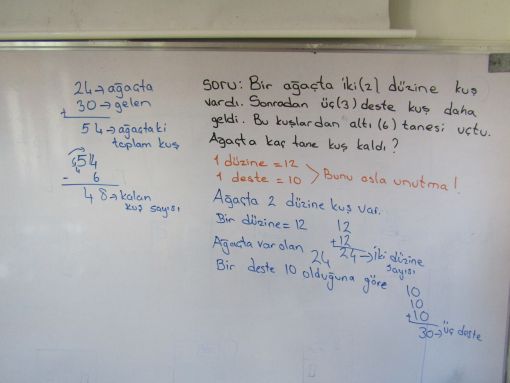 24→ağaçta
30→gelen
+
54→ağaçtaki
toplam kuş
54
- 6
48→kalan
kuş sayısı
SORU: Bir ağaçta iki(2) düzine kuş
vardı. Sonradan üç(3) deste kuş daha
geldi. Bu kuşlardan altı(6) tanesi uçtu.
Ağaçta kaç tane kuş kaldı?
1 düzine =12
1 deste =10 > Bunu asla unutma!
Ağaçta 2 düzine kuş var.
Bir düzine=12 12
+12
Ağaçta var olan 24 24→iki düzine
sayısı
Bir deste 10 olduğuna göre 10
10
+10
30→üç deste